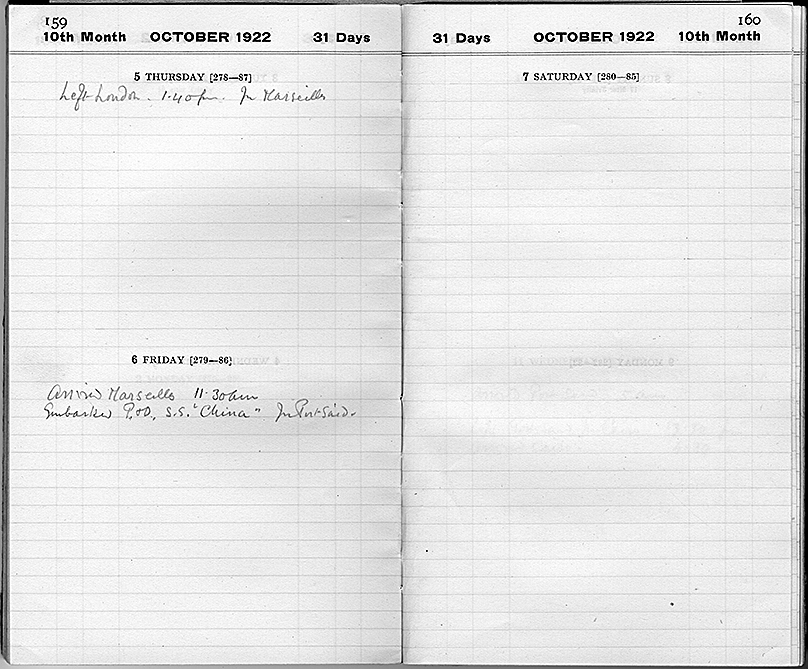 159
10th Month OCTOBER 1922 31 Days
5 THURSDAY [278—87]
Left London. 1.40 pm. for Marseilles
6 FRIDAY [279—86]
Arrived Marseilles 11.30 am
Embarked P.&O. S.S. "China" for Port Said.
160
31 Days OCTOBER 1922 10th Month
7 SATURDAY [280—85]